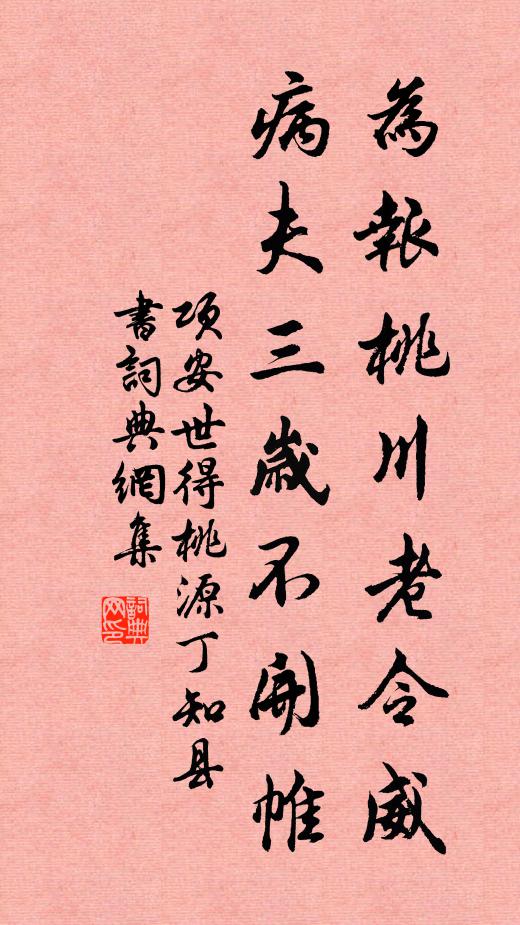 為報桃川老令威
病夫三歲不開帷
項安世得桃源丁知县
書詞典網集
詞典网印